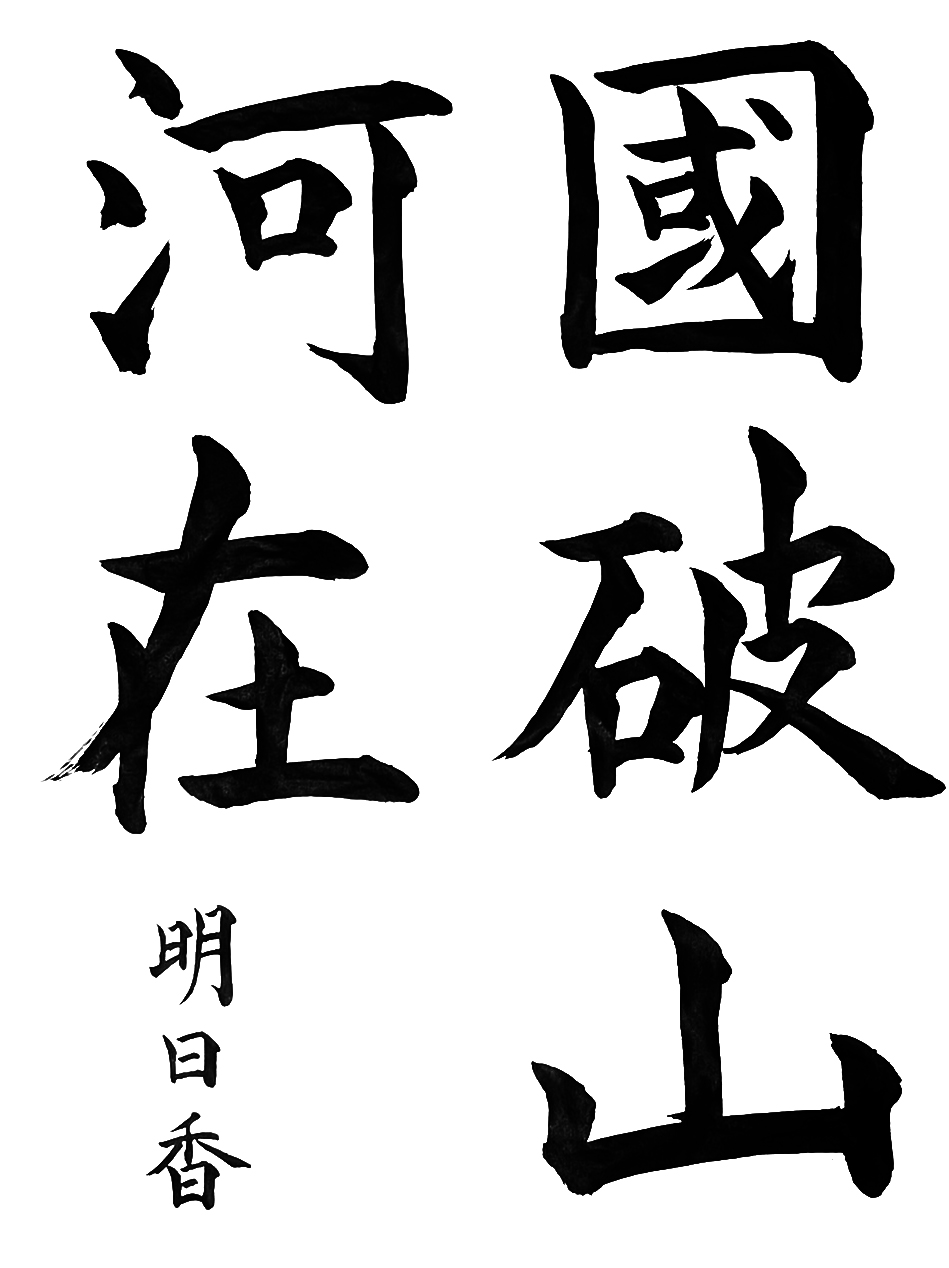 國破山
河在
明日香